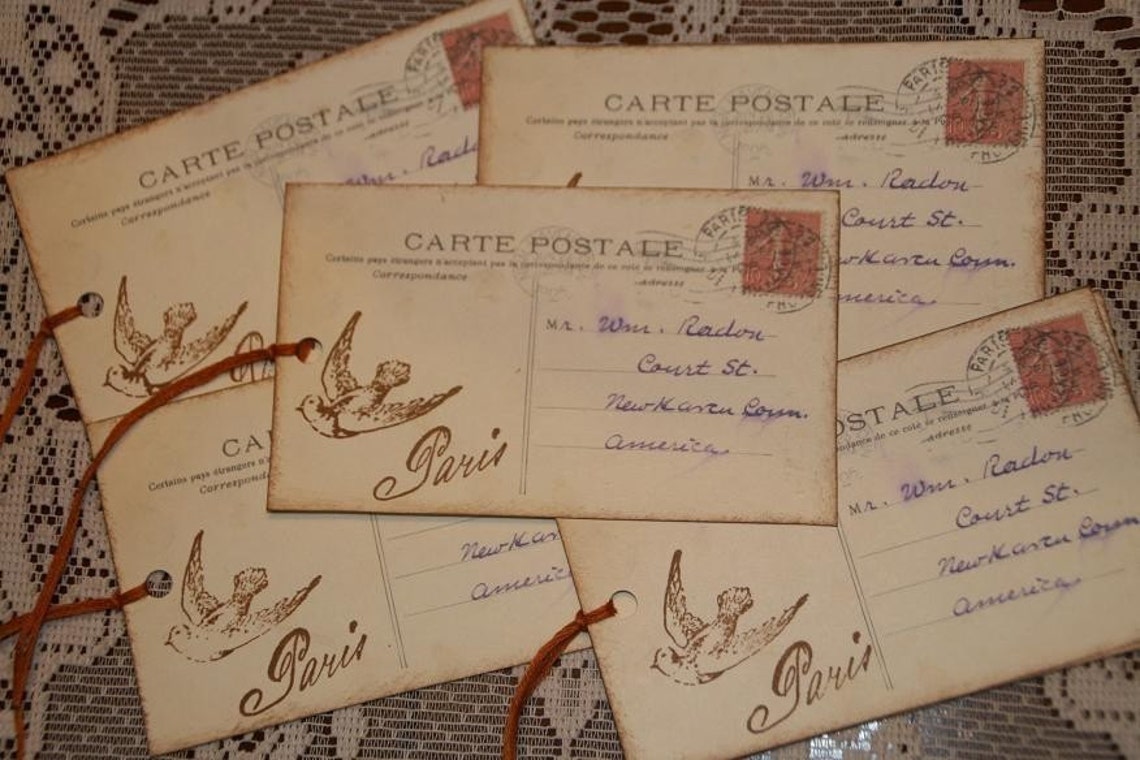 CARTE POSTALE
Certains pays étrangers n'acceptant pas la correspondance de ce coté se renseigner à la
Correspondance
adresse
Mr. Wm. Radon
CARTE POSTALE
Certains pays étrangers n'acceptant pas la correspondance de ce coté se renseigner à la
Correspondance
adresse
Mr. Wm. Radon
Court St.
New Haven Conn.
America
CARTE POSTALE
Certains pays étrangers n'acceptant pas la correspondance de ce coté se renseigner à la
Correspondance
adresse
Mr. Wm. Radon
Court St.
New Haven Conn.
America
Paris
CA
Certains pays étrangers n'accep
Correspondance
New Hav
America
Paris
OSTALE
pondance de ce coté se renseigner à la
adresse
Mr. Wm. Radon
Court St.
New Haven Conn.
America
Paris